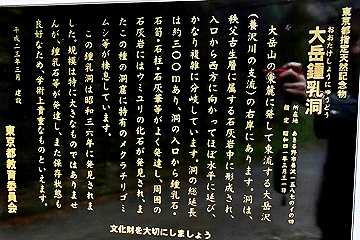 東京都指定天然記念物
おおたけしょうにゅうどう
大岳鍾乳洞
所在地 あきる野市養沢一五八七の十四
指定 昭和四十年三月三十一日
大岳山の東麓に発して東流する大岳沢
(養沢川の支流)の右岸にあります。洞は、
秩父古生層に属する石灰岩中に形成され、
入口から西方に向かってほぼ水平に延び、
かなり複雑に分岐しています。洞の総延長
は約三〇〇mあり、洞の入口から鍾乳石・
石筍・石柱・石灰華等がよく発達し、周囲の
石灰岩にはウミユリの化石が発見され、ま
たこの種の洞窟に特有のメクラチリゴミ
ムシ等が棲息しています。
この鍾乳洞は昭和三六年に発見されま
した。規模は特に大きなものではありませ
んが、鍾乳石等が発達し、また保存状態も
良好なため学術上貴重なものといえます。
平成二三年三月 建設
東京都教育委員会
文化財を大切にしましょう